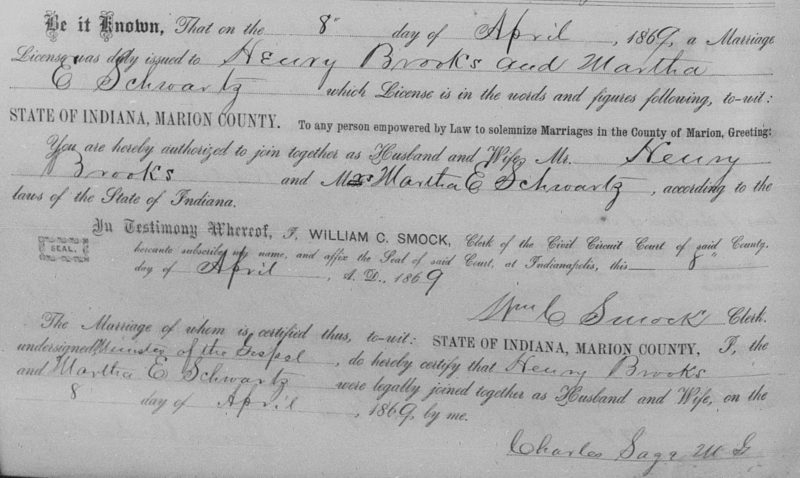 Be it Known, That on the 8" day of April, 1869, a Marriage
License was duly issued to Henry Brooks and Martha
E Schwartz which License is in the words and figures following, to-wit:
STATE OF INDIANA, MARION COUNTY. To any person empowered by Law to solemnize Marriages in the County of Marion, Greeting:
You are hereby authorized to join together as Husband and Wife, Mr. Henry
Brooks and Mrs Martha E Schwartz, according to the
laws of the State of Indiana.
In Testimony Whereof, I, WILLIAM C. SMOCK, Clerk of the Civil Circuit Court of said County,
SEAL. hereunto subscribe my name, and affix the Seal of said Court, at Indianapolis, this 8"
day of April, A. D., 1869
Wm C Smock Clerk.
The Marriage of whom is certified thus, to-wit: STATE OF INDIANA, MARION COUNTY, I, the
undersigned Minister of the Gospel, do hereby certify that Henry Brooks
and Martha E Schwartz were legally joined together as Husband and Wife, on the
8 day of April, 1869, by me.
Charles Saga M G